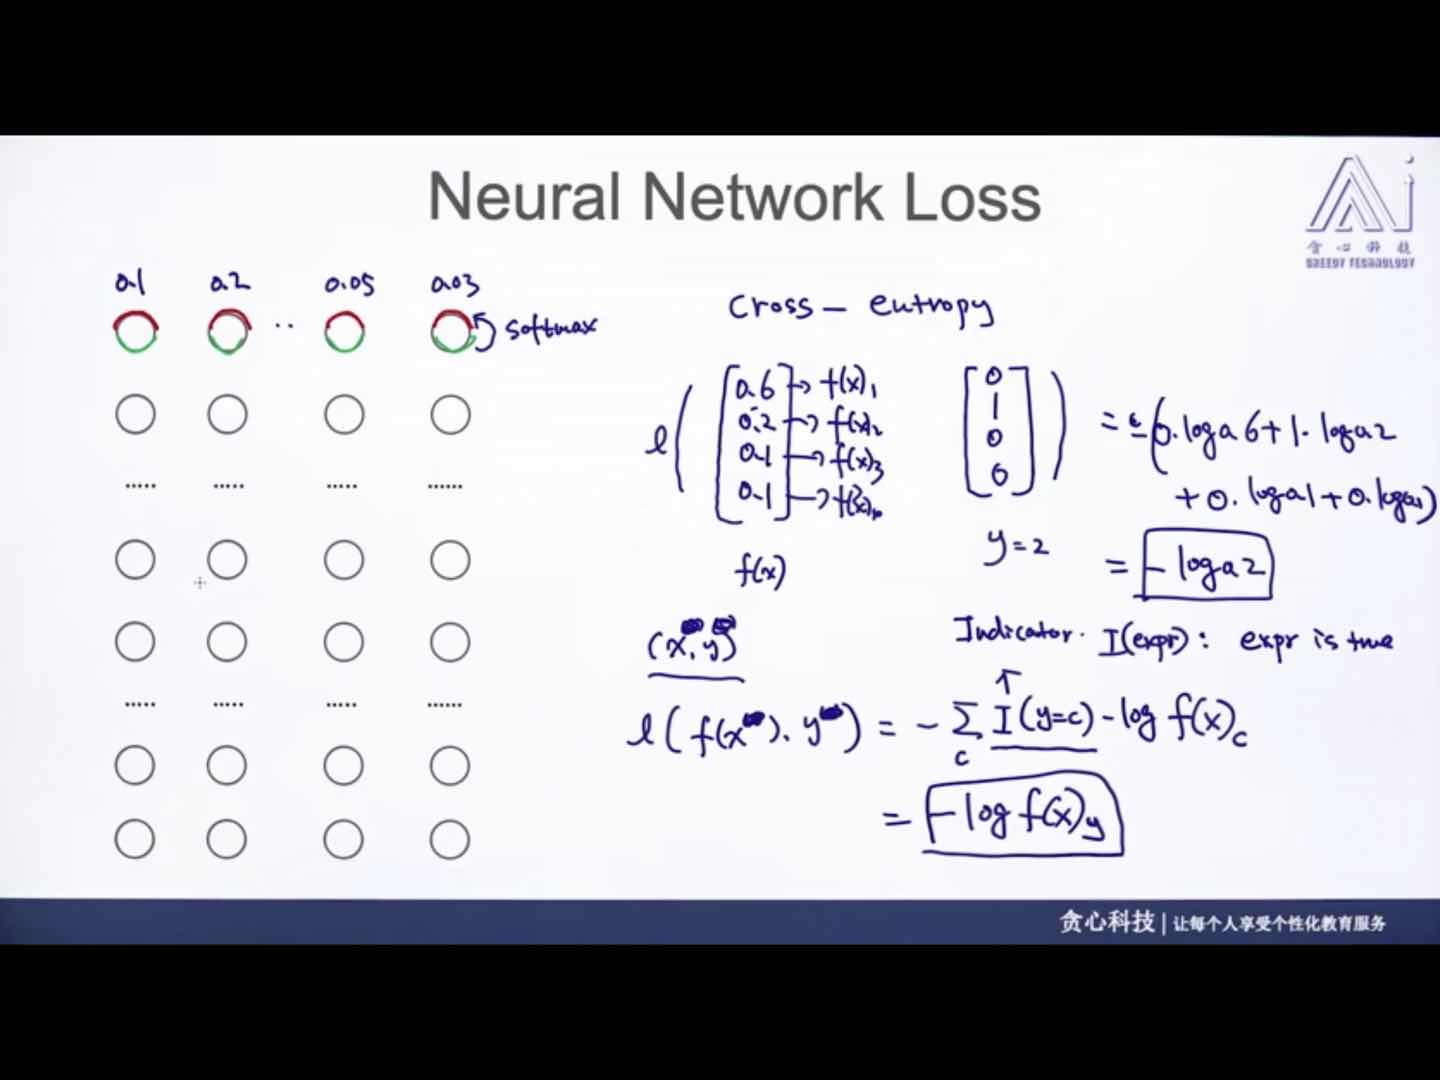 Neural Network Loss
Ai
贪心科技
GREEDY TECHNOLOGY
0.1 0.2 .. 0.05 0.03
softmax
Cross - entropy
l( [0.6 → f(x)₁ [0 ) = -(0.log0.6+1.log0.2
0.2 → f(x)₂ 1
0.1 → f(x)₃ 0
0.1 → f(x)₄] 0] +0.log0.1+0.log0.1)
f(x) y=2 = -log0.2
(x,y) Indicator. I(expr): expr is true
l(f(x), y) = -∑c I(y=c)-log f(x)c
= -log f(x)y
贪心科技 | 让每个人享受个性化教育服务